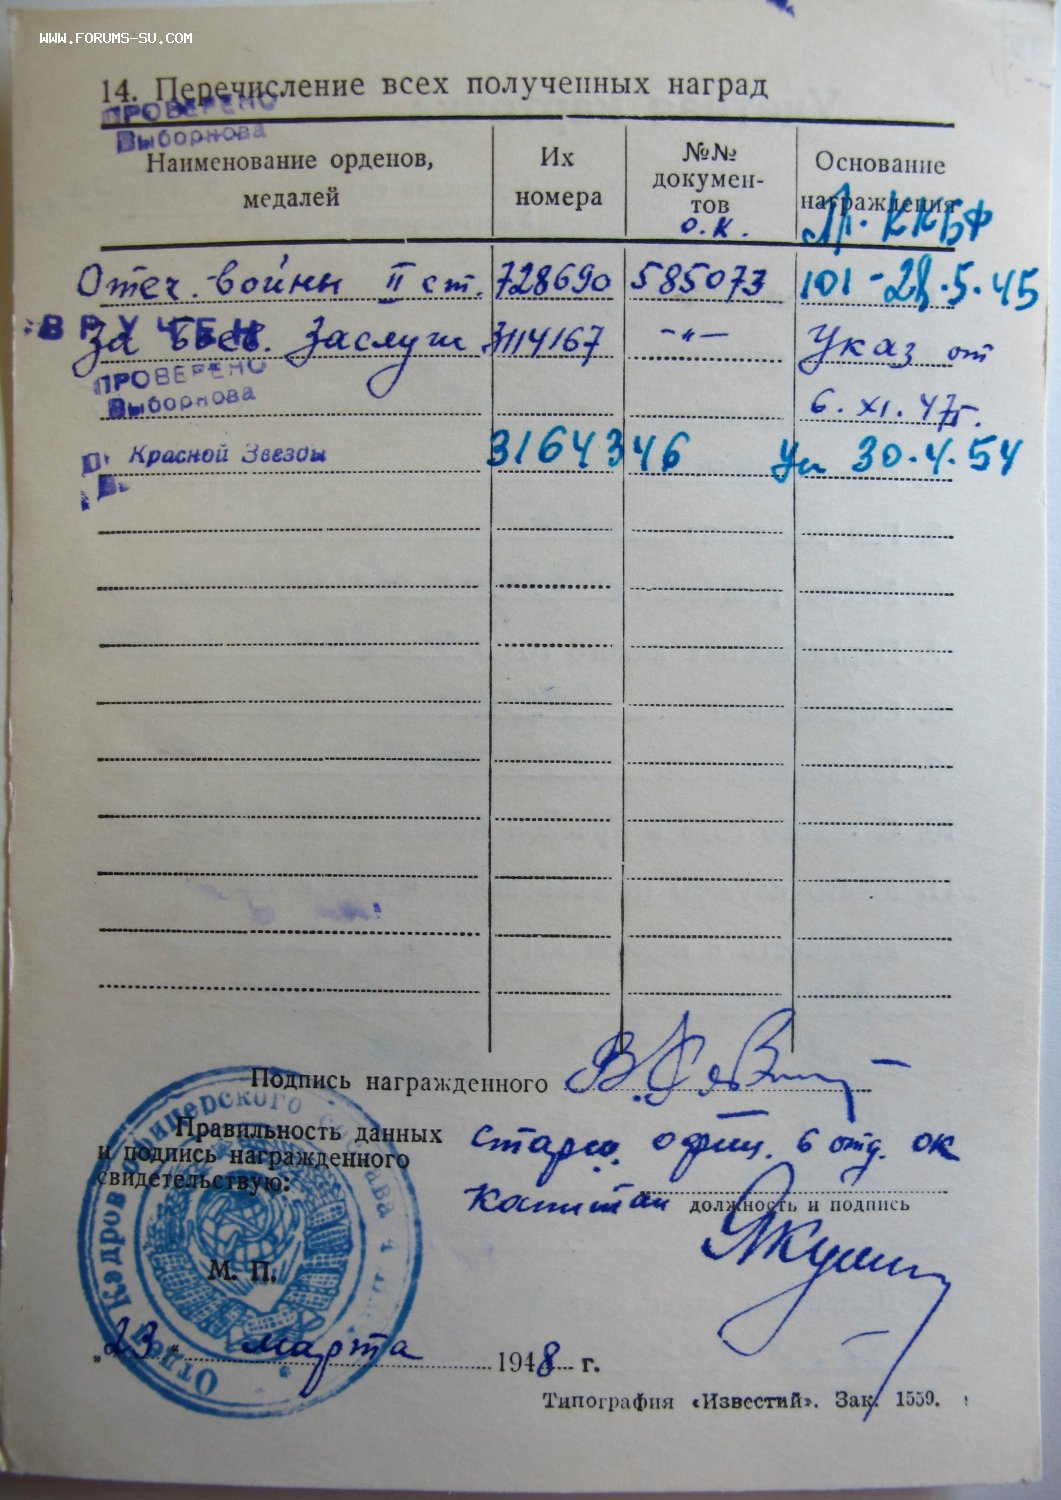 WWW.FORUMS-SU.COM
14. Перечисление всех полученных наград
ПРОВЕРЕНО
Выборнова
Наименование орденов, медалей
Их номера
№№ докумен-тов
о.к.
Основание награждения
Пр. ККБФ
Отеч. войны II ст. 728690 585073 101-28.5.45
ВРУЧЕН
За боев. заслуги 3114167 -"- Указ от
ПРОВЕРЕНО
Выборнова
6.XI.47г.
Красной Звезды 3164346 Ук 30.4.54
Подпись награжденного
Правильность данных
и подпись награжденного
свидетельствую:
старш. офиц. 6 отд. ОК
капитан
должность и подпись
М. П.
Отдел Кадров офицерского состава 4
„23“ марта 1948 г.
Типография «Известий». Зак. 1559.